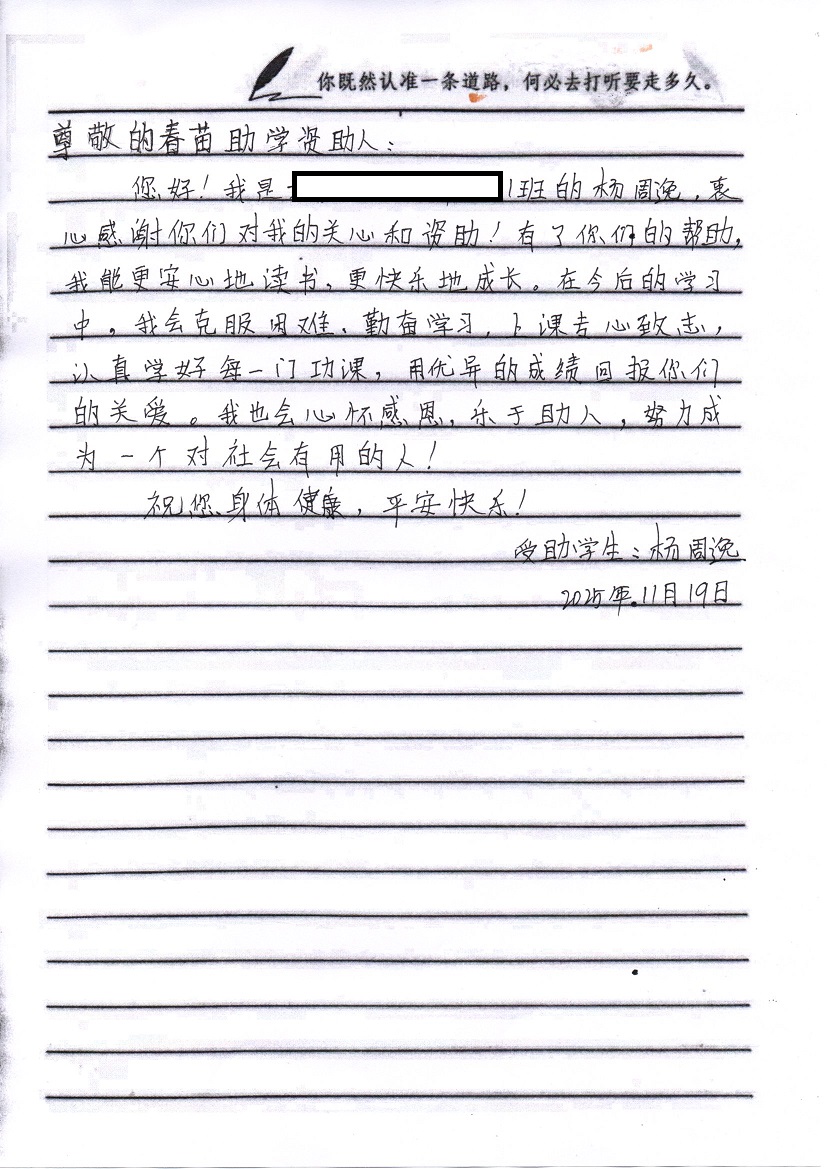 你既然认准一条道路，何必去打听要走多久。
尊敬的春苗助学资助人：
您好！我是 1班的杨周逸，衷
心感谢你们对我的关心和资助！有了你们的帮助，
我能更安心地读书，更快乐地成长。在今后的学习
中，我会克服困难、勤奋学习，上课专心致志，
认真学好每一门功课，用优异的成绩回报你们
的关爱。我也会心怀感恩，乐于助人，努力成
为一个对社会有用的人！
祝您身体健康，平安快乐！
受助学生：杨周逸
2025年11月19日